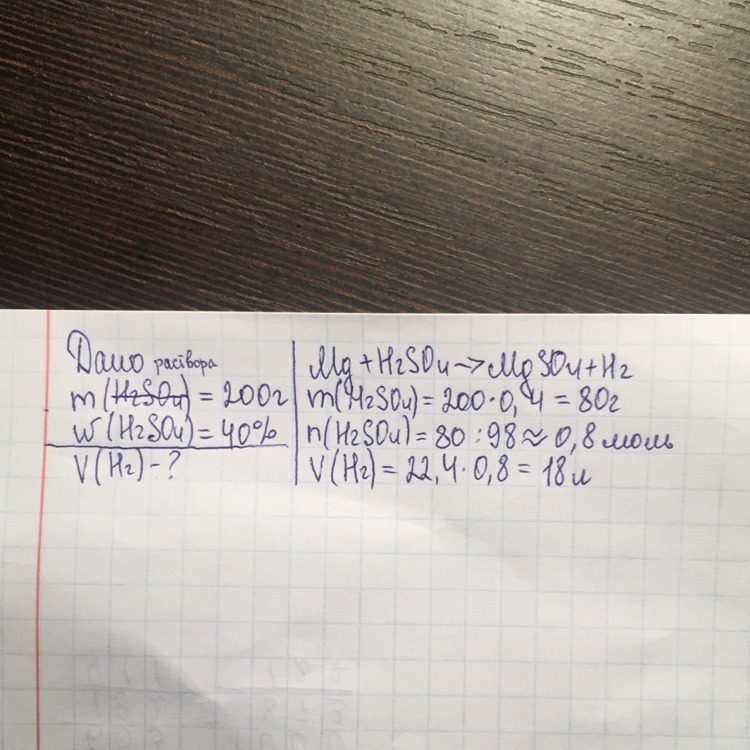 Дано раствора
m(H2SO4) = 200г
w(H2SO4) = 40%
V(H2) - ?
Mg + H2SO4 → MgSO4 + H2
m(H2SO4) = 200·0,4 = 80г
n(H2SO4) = 80 : 98 ≈ 0,8 моль
V(H2) = 22,4·0,8 = 18л